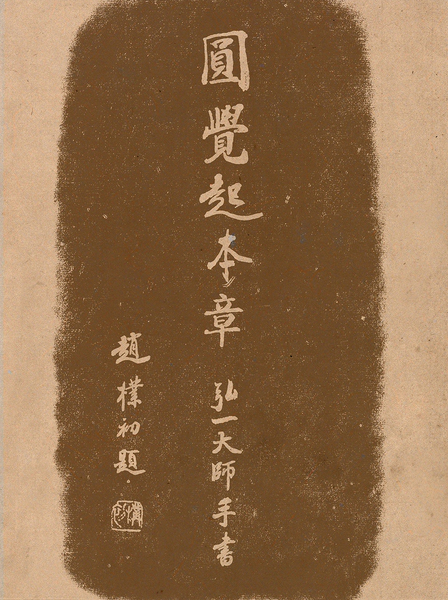 圓覺起本章 弘一大師手書
趙樸初題